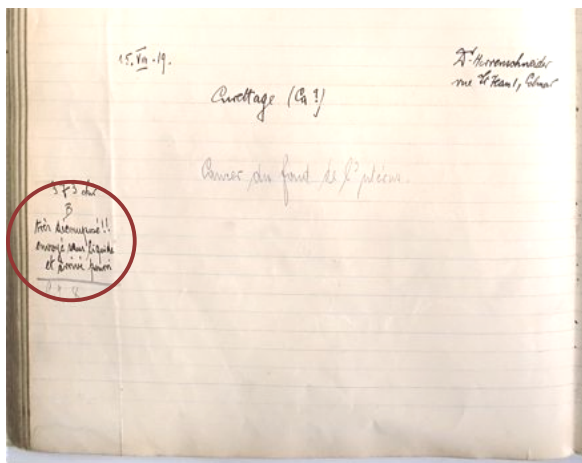 15. VII -19.
Dr Herrenschneider
rue St Jean 1, Colmar
Curettage (Ca?)
Cancer du fond de l'utérus.
B
très décomposé!!
envoyé sans liquide
et arrivé pourri